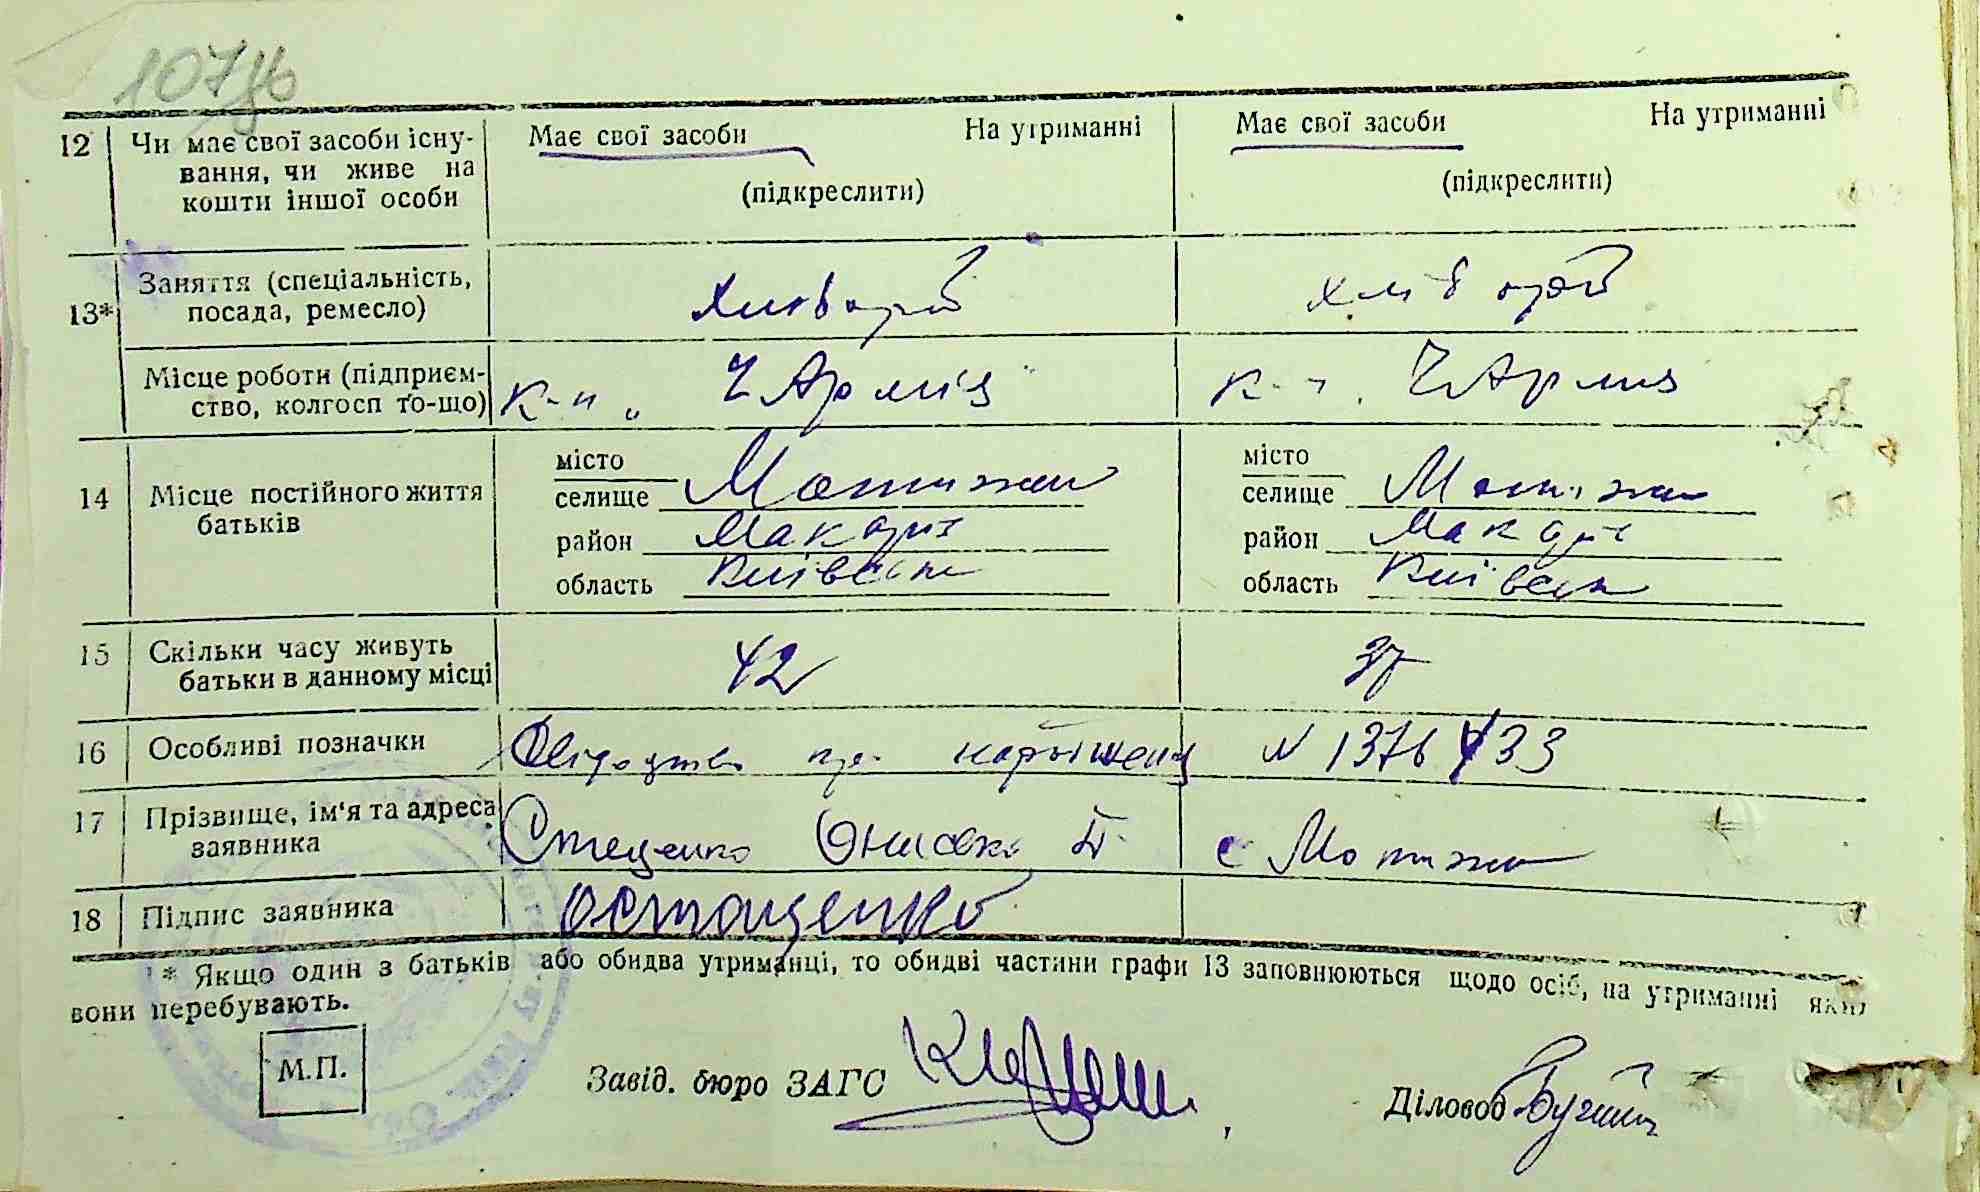 107
12 Чи має свої засоби існу-
вання, чи живе на
кошти іншої особи
Має свої засоби На утриманні
(підкреслити)
Має свої засоби На утриманні
(підкреслити)
13* Заняття (спеціальність,
посада, ремесло)
Хлібороб
хлібороб
Місце роботи (підприєм-
ство, колгосп то-що)
Ч Армія
Ч Армия
14 Місце постійного життя
батьків
місто
селище Мотижин
район Макарів
область Київськ
місто
селище Мотижин
район Макарів
область Київськ
15 Скільки часу живуть
батьки в данному місці
42
37
16 Особливі позначки
Свідоцтво про народження N 1376 33
17 Прізвище, ім'я та адреса
заявника
Стеценко с Мотижин
18 Підпис заявника
* Якщо один з батьків або обидва утриманці, то обидві частини графи 13 заповнюються щодо осіб, на утриманні яких
вони перебувають.
М.П.
Завід. бюро ЗАГС
Діловод